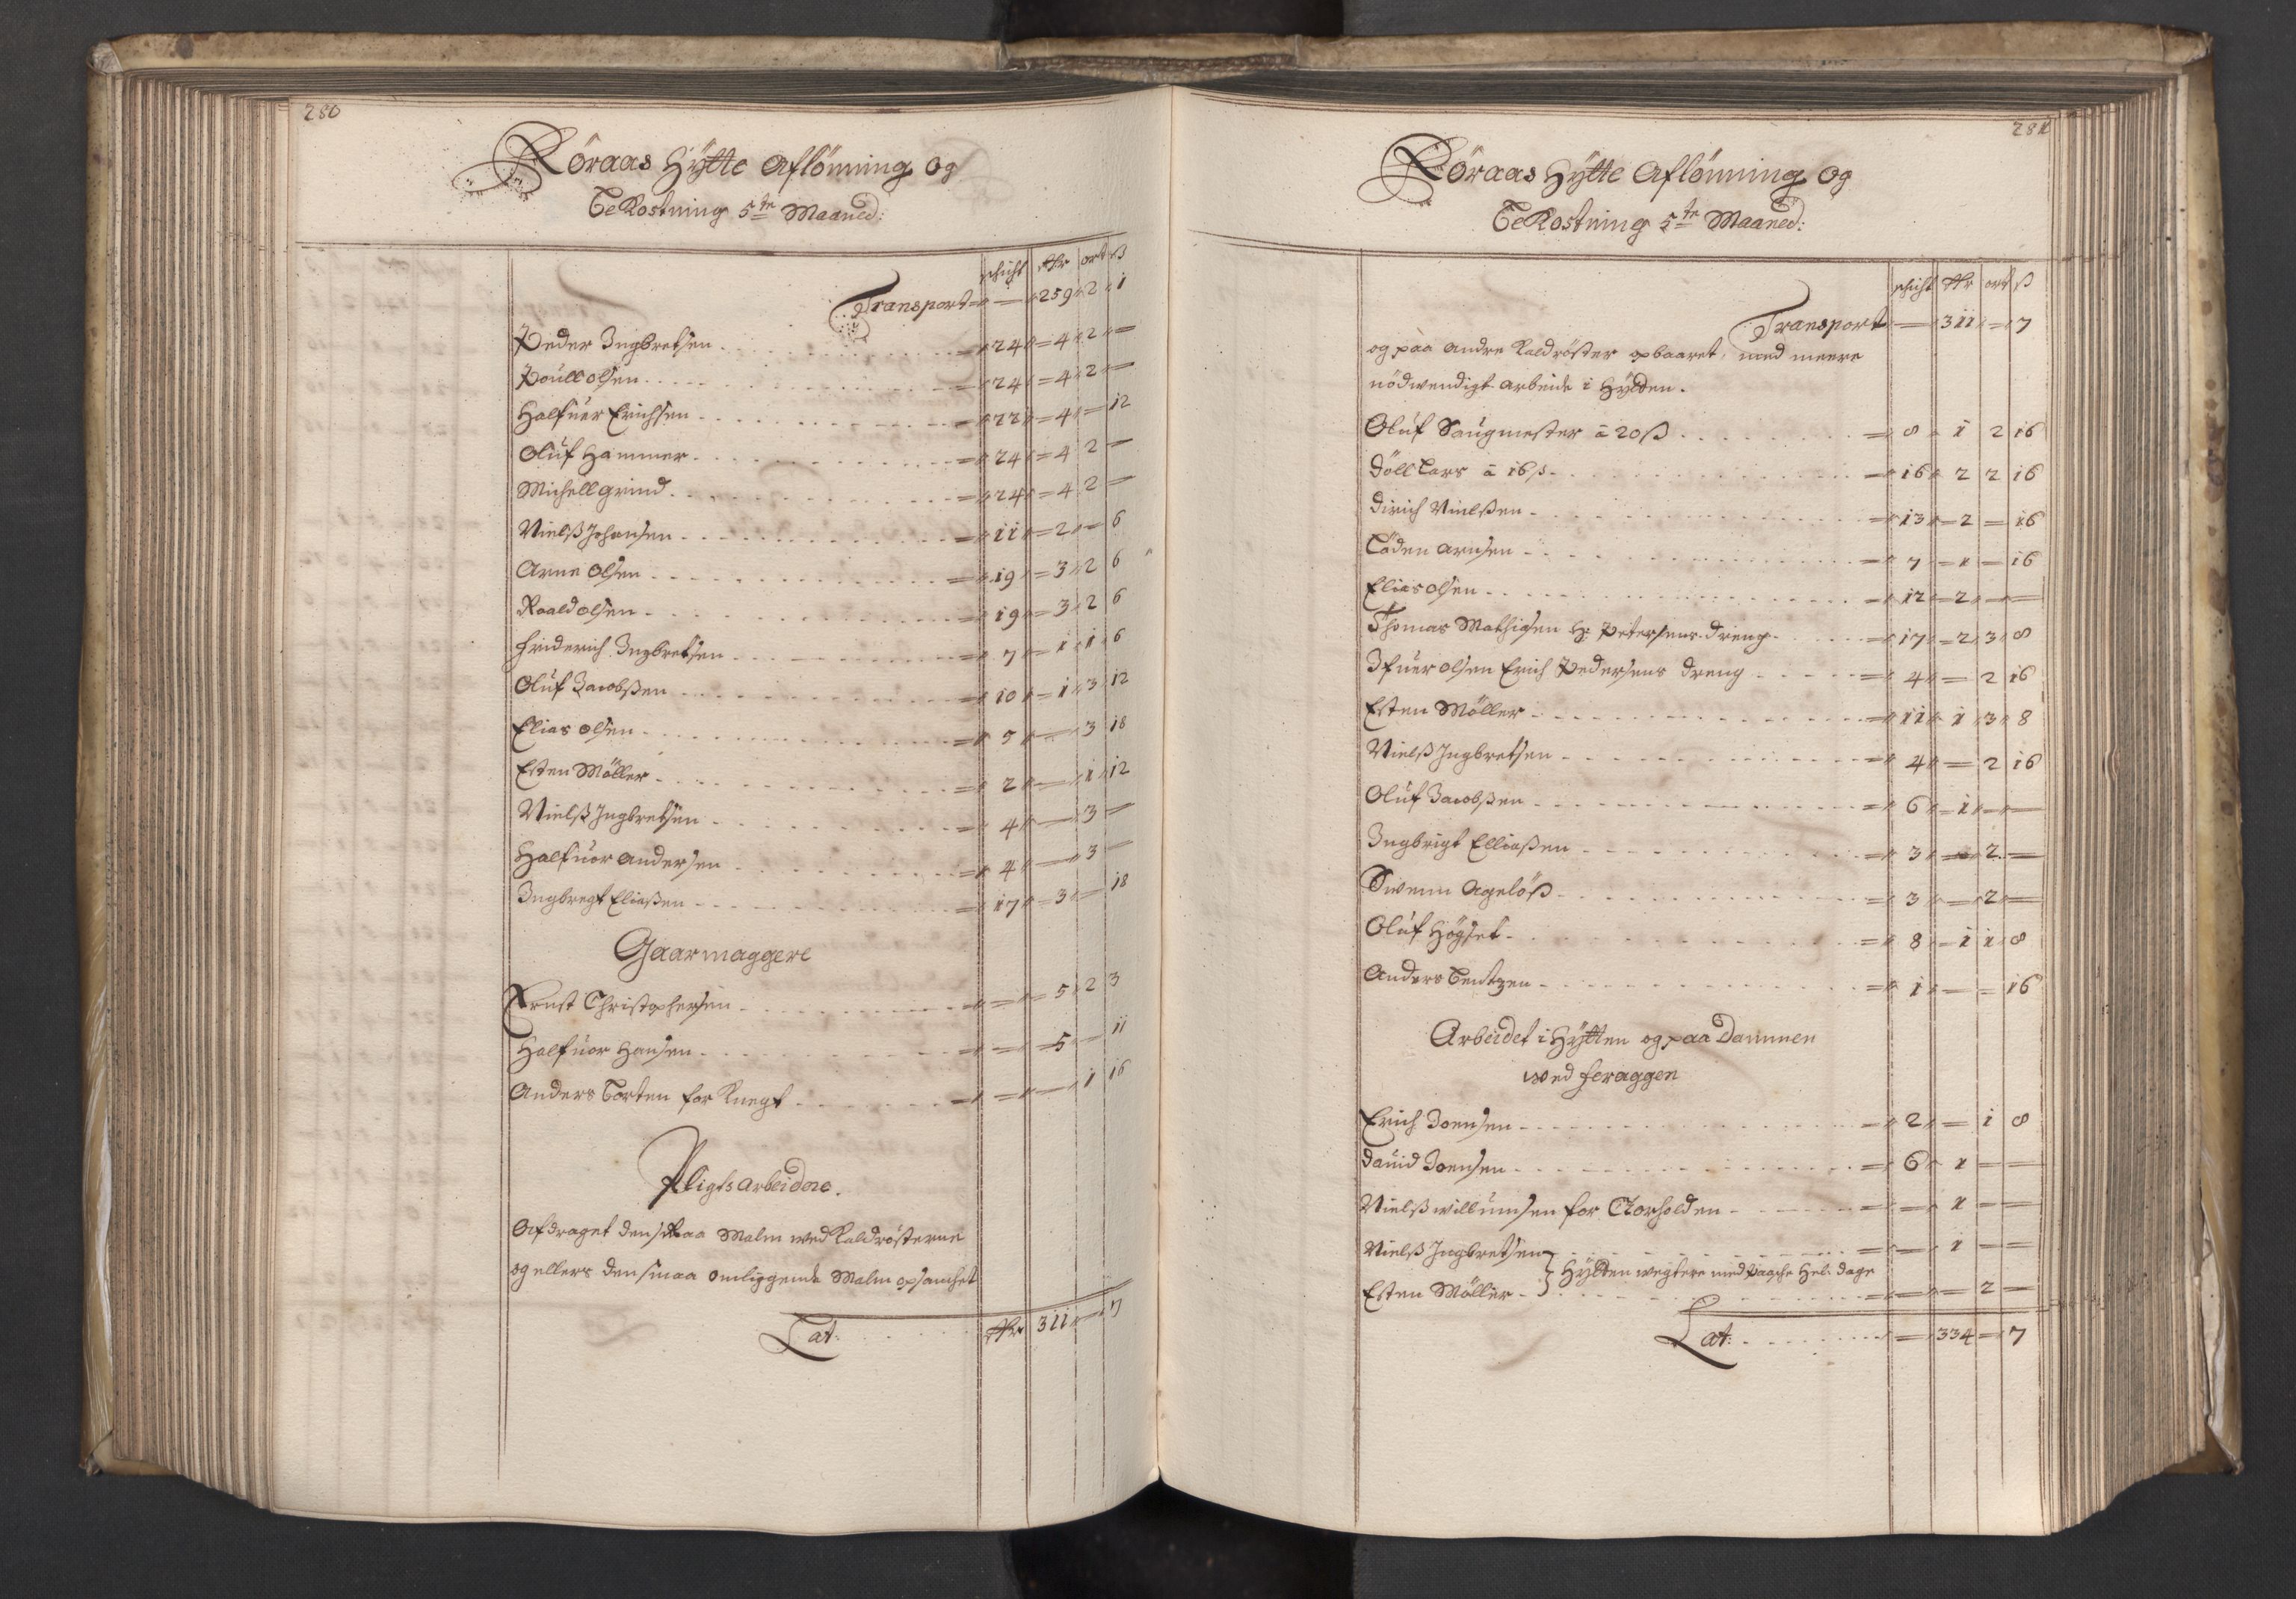 280
Röraas Hÿtte Aflönning og
Bekostning 5te Maaned:
schicht Rdr ort ß
Transport — 259 2 1
Peder Ingbretsen 24 4 2 —
Poüll olsen 24 4 2 —
Halfuer Erichsen 22 4 — 12
Oluf Hammer 24 4 2 —
Michell grind 24 4 2 —
Nielß Johansen 11 2 — 6
Arne Olsen 19 3 2 6
Roald olsen 19 3 2 6
Friderich Ingbretsen 7 1 1 6
Oluf Jacobßen 10 1 3 12
Elias olsen 5 — 3 18
Esten Möller 2 — 1 12
Nielß Ingbretsen 4 — 3 —
Halfuor andersen 4 — 3 —
Ingbregt Eliaßen 17 3 — 18
Gaarmaggere
Ernst Christophersen — 5 2 3
Halfuor Hansen — 5 — 11
Anders Torten for Knegt — — 1 16
Pligts arbeidere.
Afdraget den smaa Malm wed Kaldrösterne
og ellers den smaa omliggende Malm opsamhet
Lat: Rdr 311 — 7
281
Röraas Hÿtte Aflönning og
Bekostning 5te Maaned:
schicht Rdr ort ß
Transport — 311 — 7
og paa andre Kaldröster opbaaret, med meere
nödwendigt arbeide i Hÿtten.
Oluf Saugmester à 20 ß 8 1 2 16
Döll Lars à 16 ß 16 2 2 16
Dirich Nielßen 13 2 — 16
Löden arnsen 7 1 — 16
Elias olsen 12 2 — —
Thomas Mathisen H: Petersens dreng 17 2 3 8
Ifuer olsen Erich Pedersens dreng 4 — 2 16
Esten Möller 11 1 3 8
Nielß Ingbretsen 4 — 2 16
Oluf Jacobßen 6 1 — —
Ingbrigt Elliaßen 3 — 2 —
Swenn Ageløß 3 — 2 —
Oluf Högset 8 1 1 8
Anders Bentzen 1 — — 16
Arbeidet i Hÿtten og paa Dammen
wed feraggen
Erich Joensen 2 — 1 8
Dauid Joensen 6 1 — —
Nielß willumsen for Clorholden — 1 — —
Nielß Ingbretsen — 1 — —
} Hÿtten wegtere med Paasche Hel: dage
Esten Möller — — 2 —
Lat: — 334 — 7